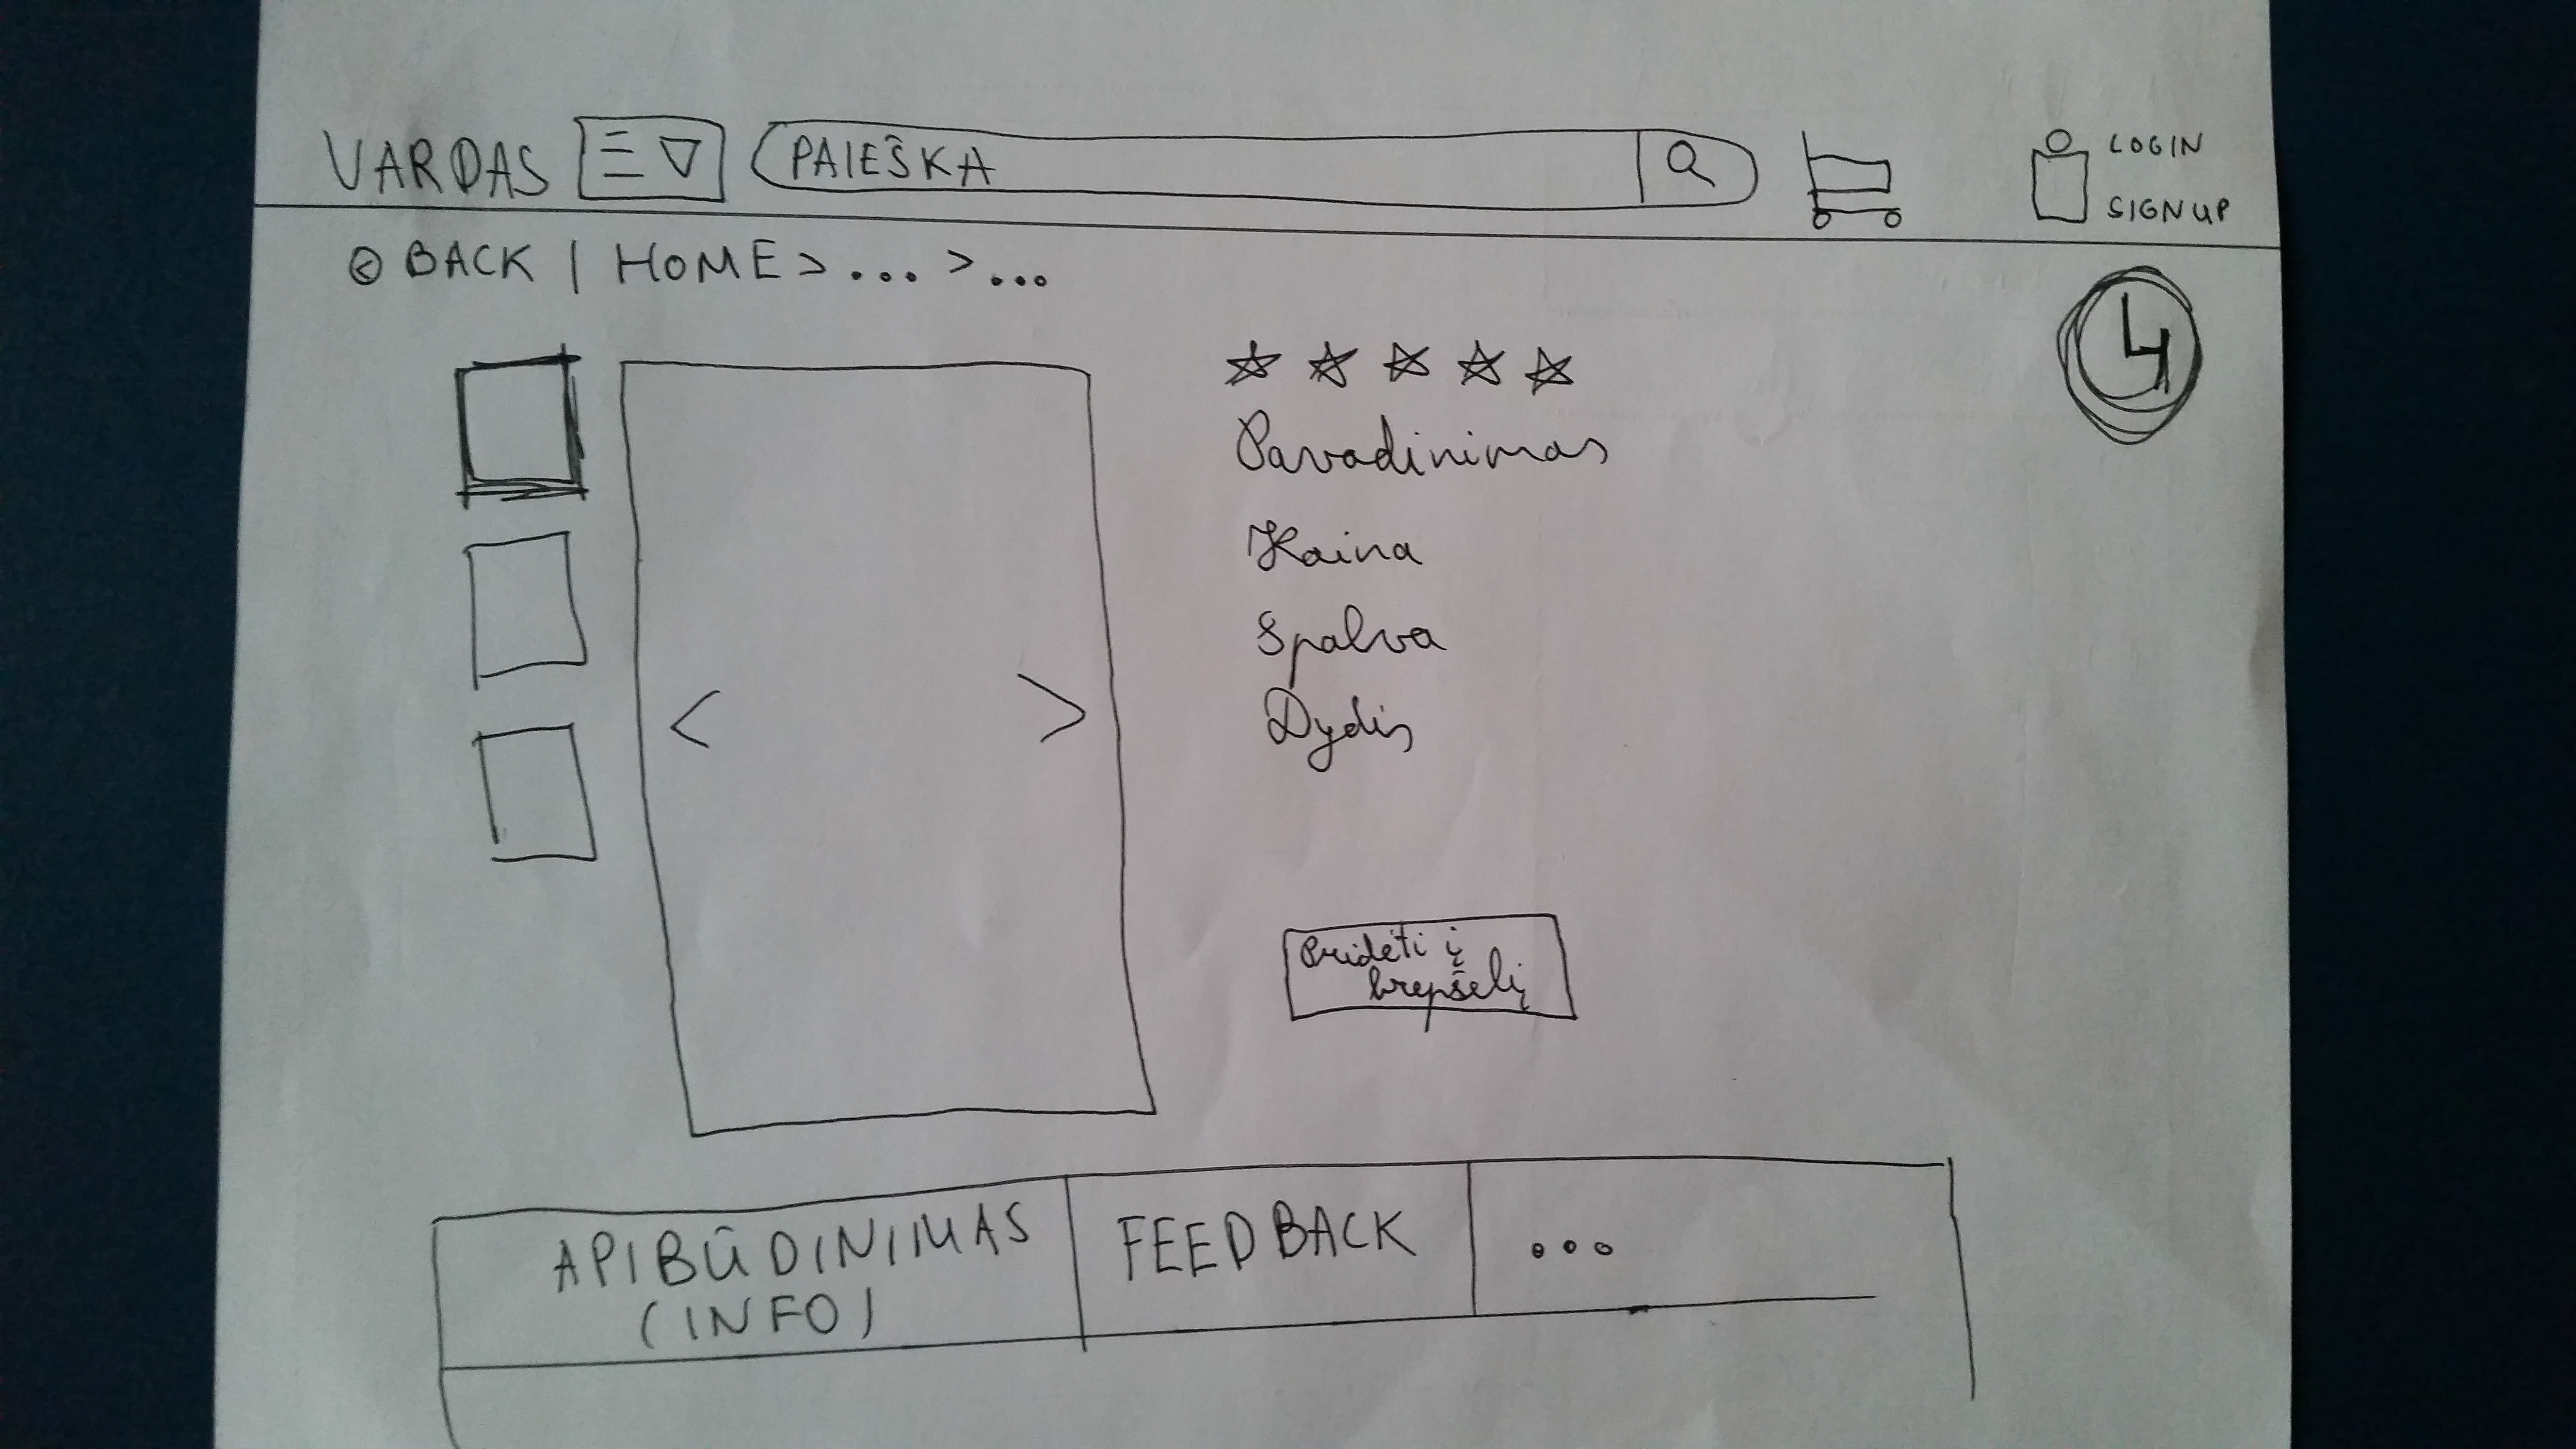 VARDAS PAIEŠKA LOGIN
SIGNUP
BACK | HOME > ... > ...
4
Pavadinimas
Kaina
Spalva
Dydis
Pridėti į
krepšelį
APIBŪDINIMAS
(INFO)
FEEDBACK
...